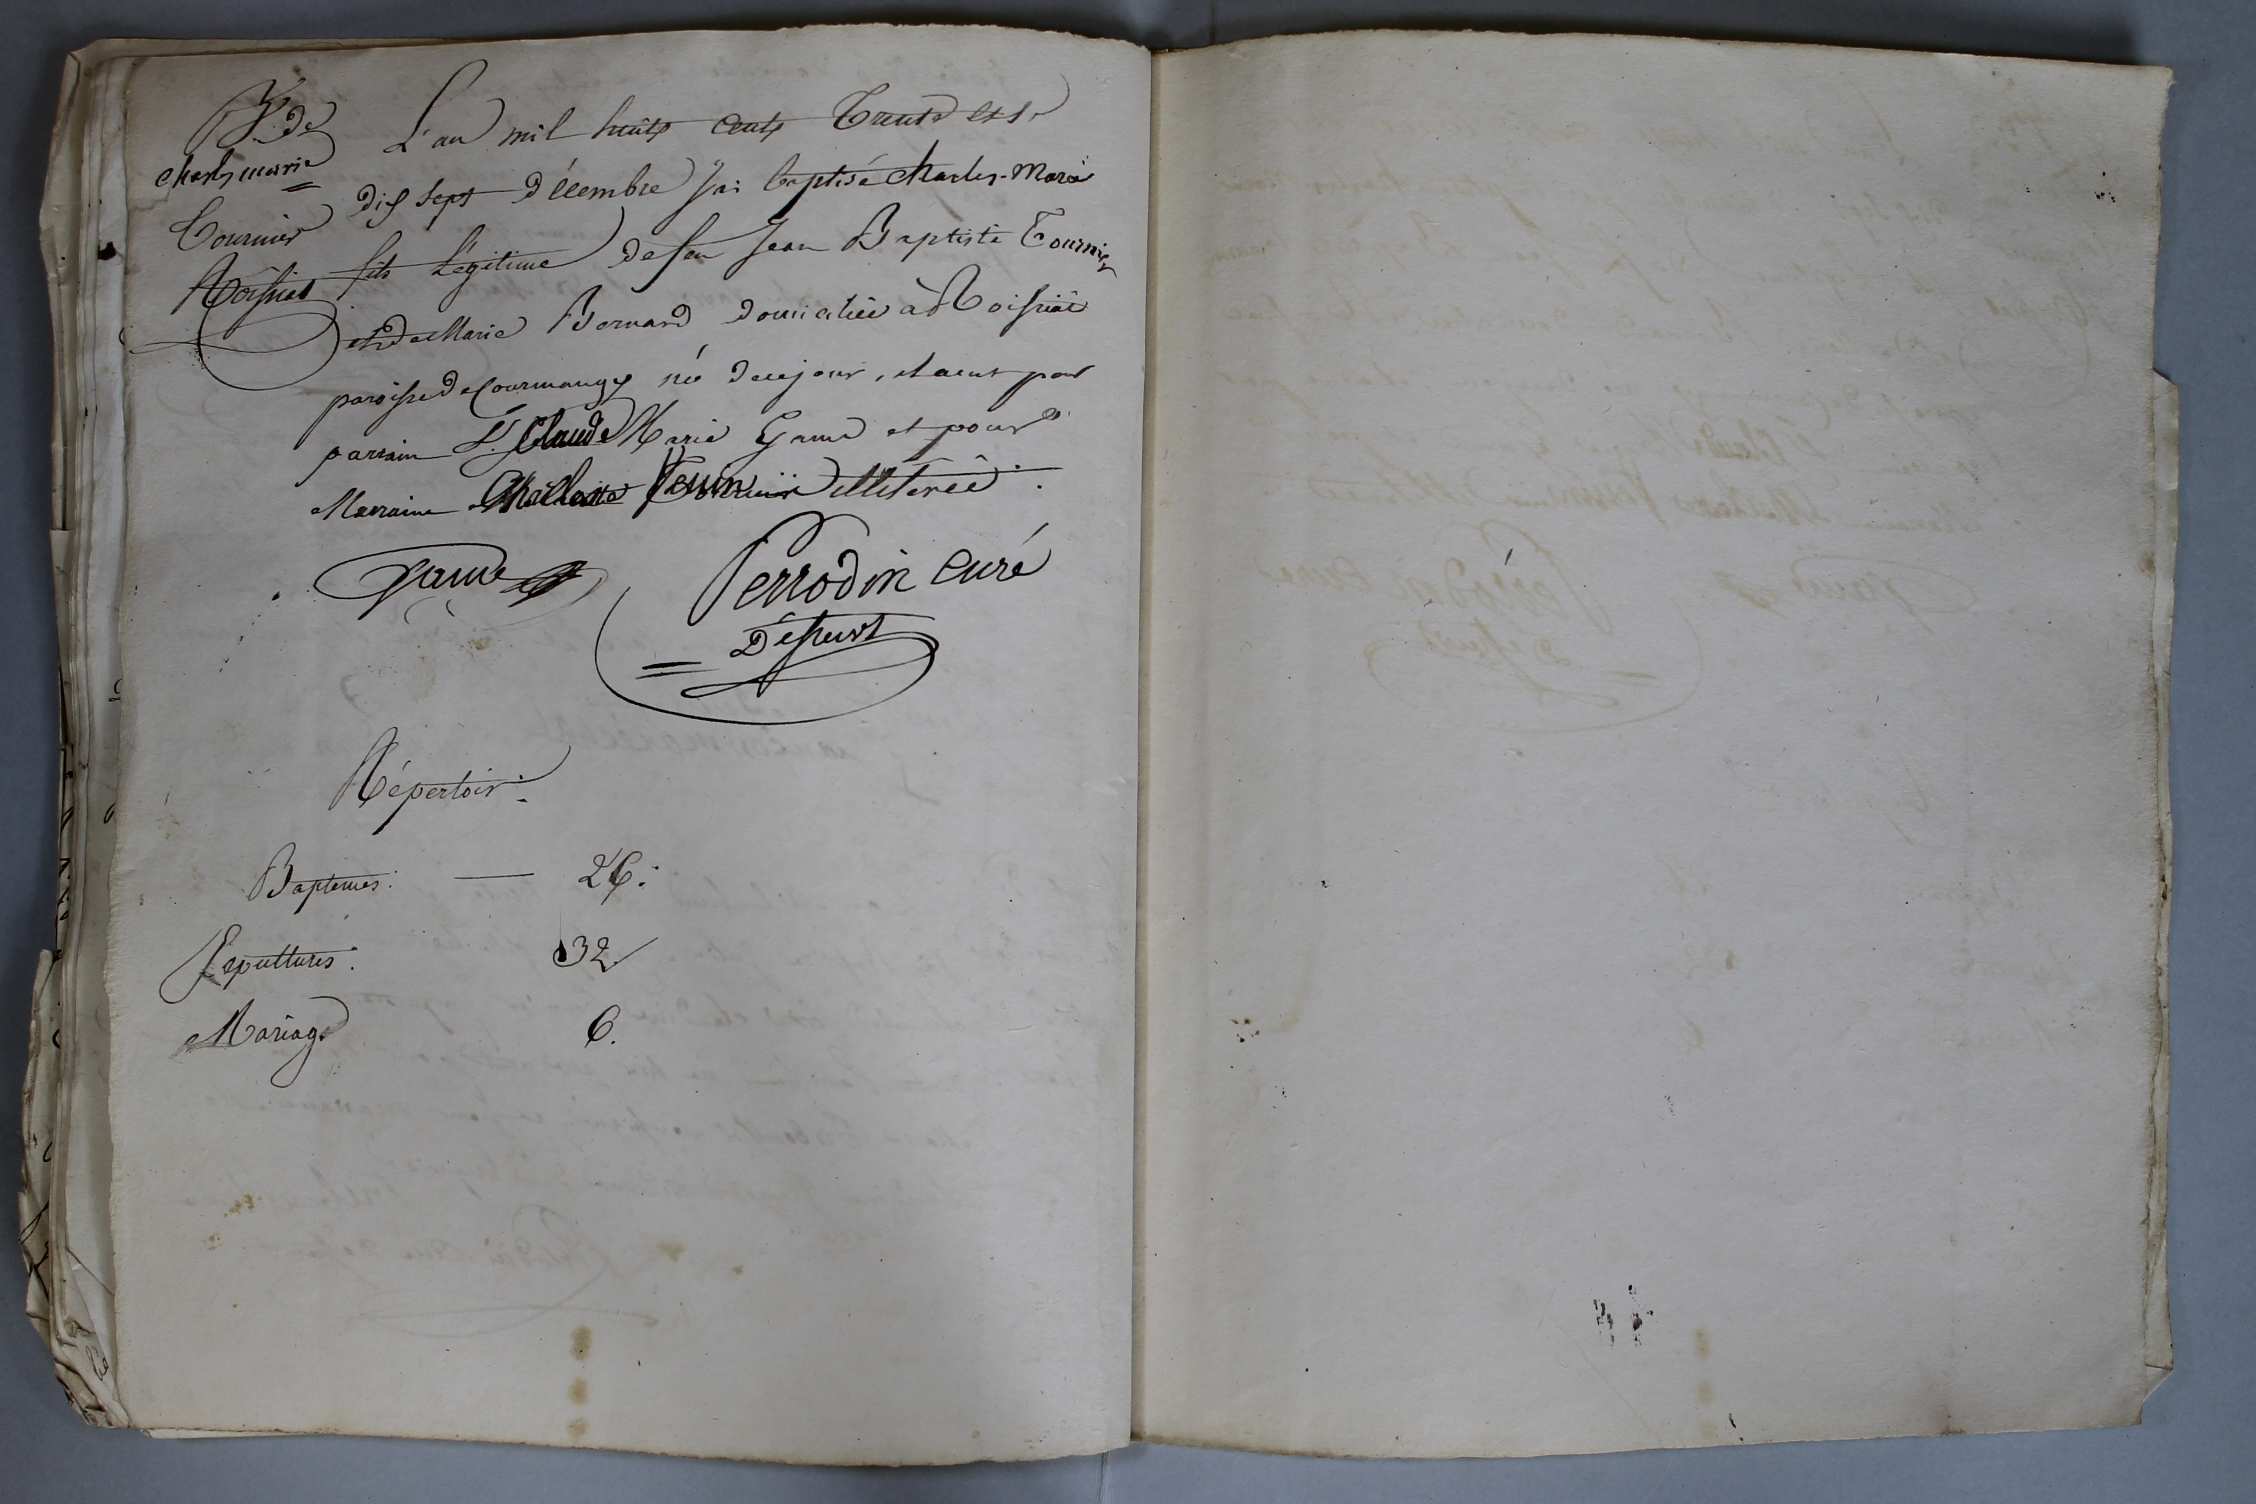 B. de
Charles marie
Tournier
Roissiat
L'an mil huits cents Trente et le
dix sept Décembre j'ai baptisé Charles-Marie
fils légitime de feu Jean Baptiste Tournier
et de Marie Bernard domiciliée à Roissiat
paroisse de Courmangy né de ce jour, et a eut pour
parrain Sr. Claude Marie Game et pour
Marraine illiterée.
Game
Perrodin curé
Dessert
Répertoir.
Baptemes: — 26.
Sepultures. 32
Mariage 6.